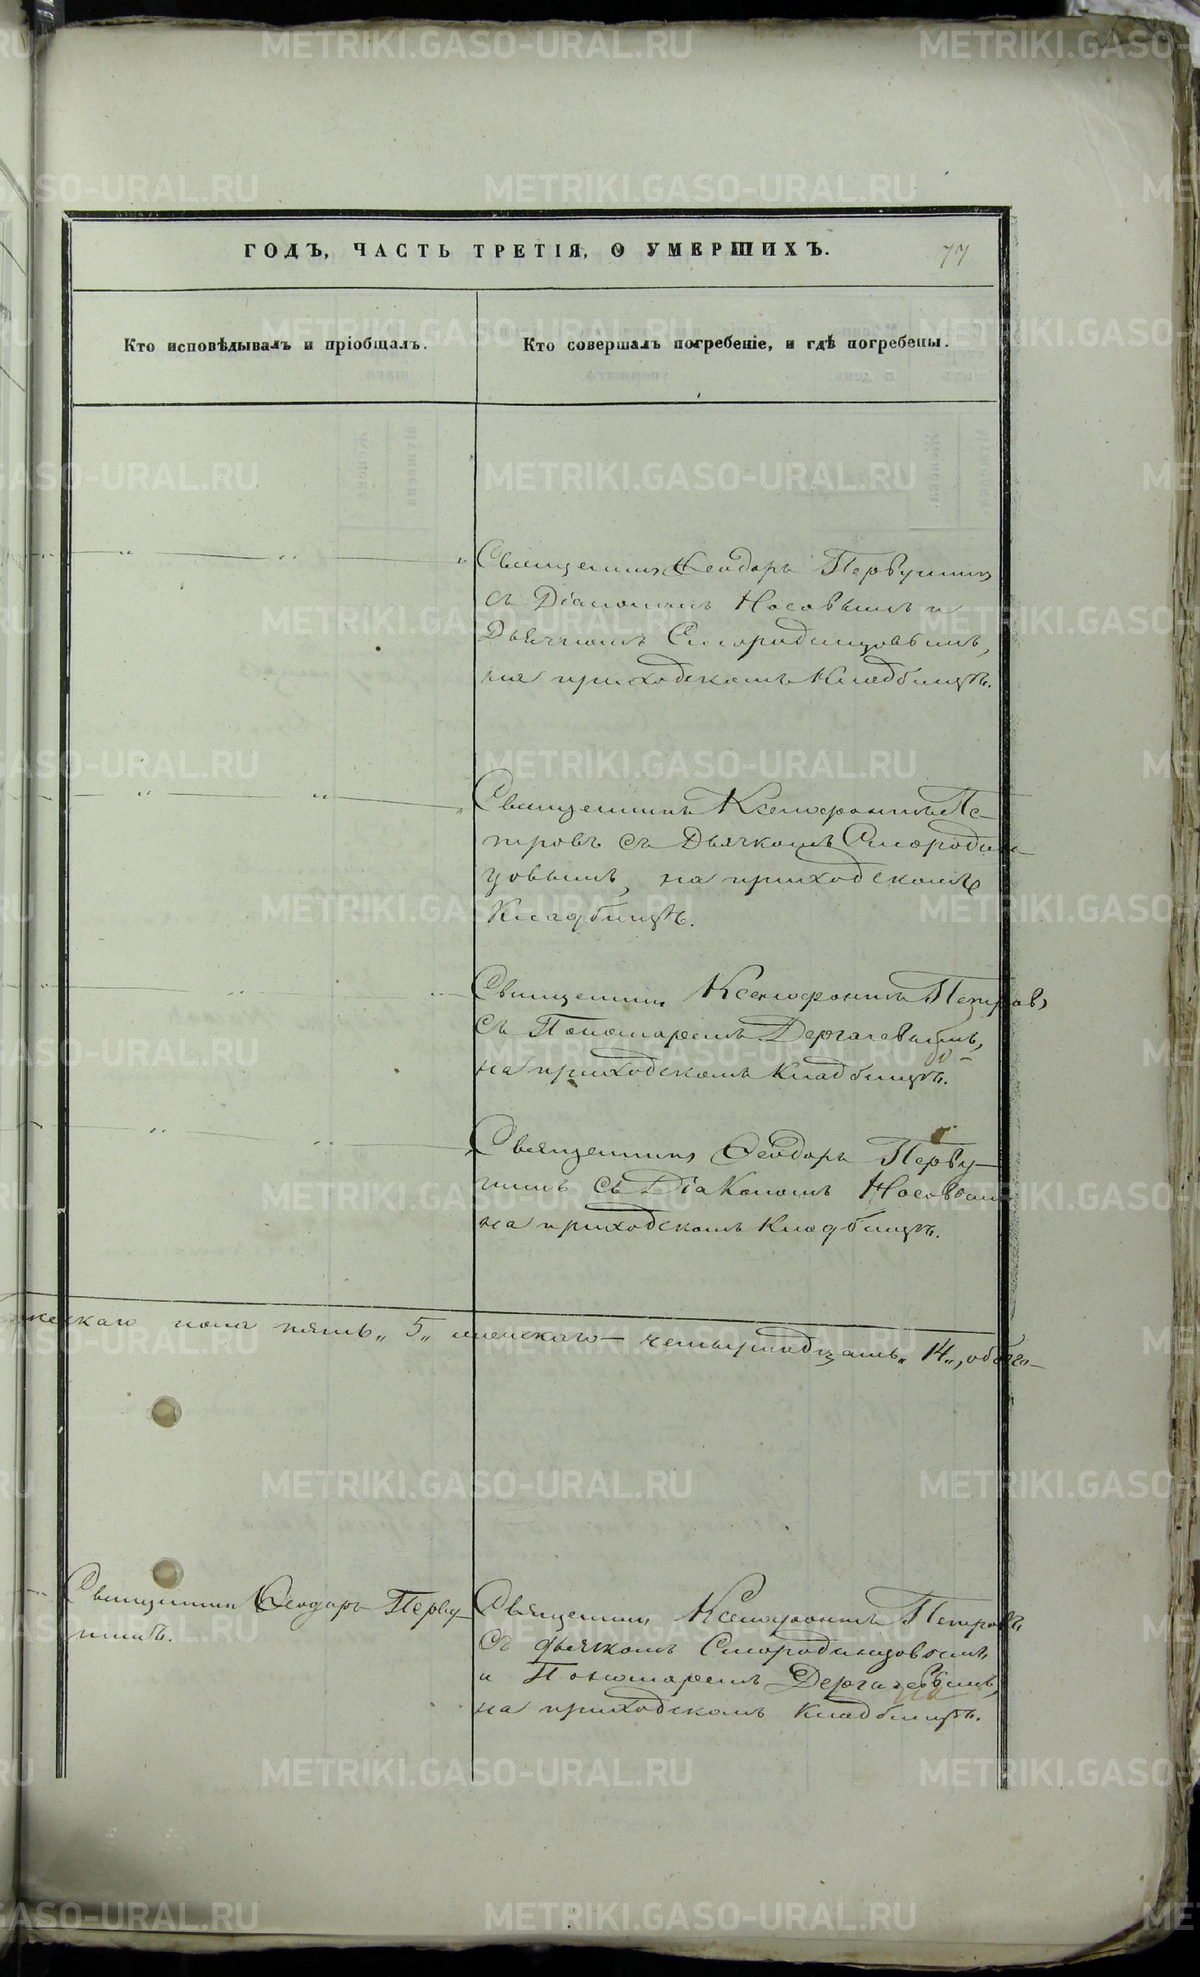 ГОДЪ, ЧАСТЬ ТРЕТІЯ, О УМЕРШИХЪ.
77
Кто исповѣдывалъ и пріобщалъ.
Кто совершалъ погребеніе, и гдѣ погребены.
Священникъ Ѳеодоръ Первушинъ
съ Діакономъ Носовымъ и
Дьячкомъ Смородинцовымъ,
на приходскомъ Кладбищѣ.
Священникъ Ксенофонтъ Пе-
тровъ съ Дьячкомъ Смородин-
цовымъ, на приходскомъ
Кладбищѣ.
Священникъ Ксенофонтъ Петровъ,
съ Пономаремъ Дергачевымъ,
на приходскомъ Кладбищѣ.
Священникъ Ѳеодоръ Перву-
шинъ съ Діакономъ Носовым
на приходскомъ Кладбищѣ.
пола пять „5„ женскаго – четырнадцать „14„, обоего
Священникъ Ѳеодоръ Перву-
шинъ.
Священникъ Ксенофонтъ Петровъ
съ дьячкомъ Смородинцовымъ
и Пономаремъ Дергачевымъ,
на приходскомъ Кладбищѣ.
METRIKI.GASO-URAL.RU